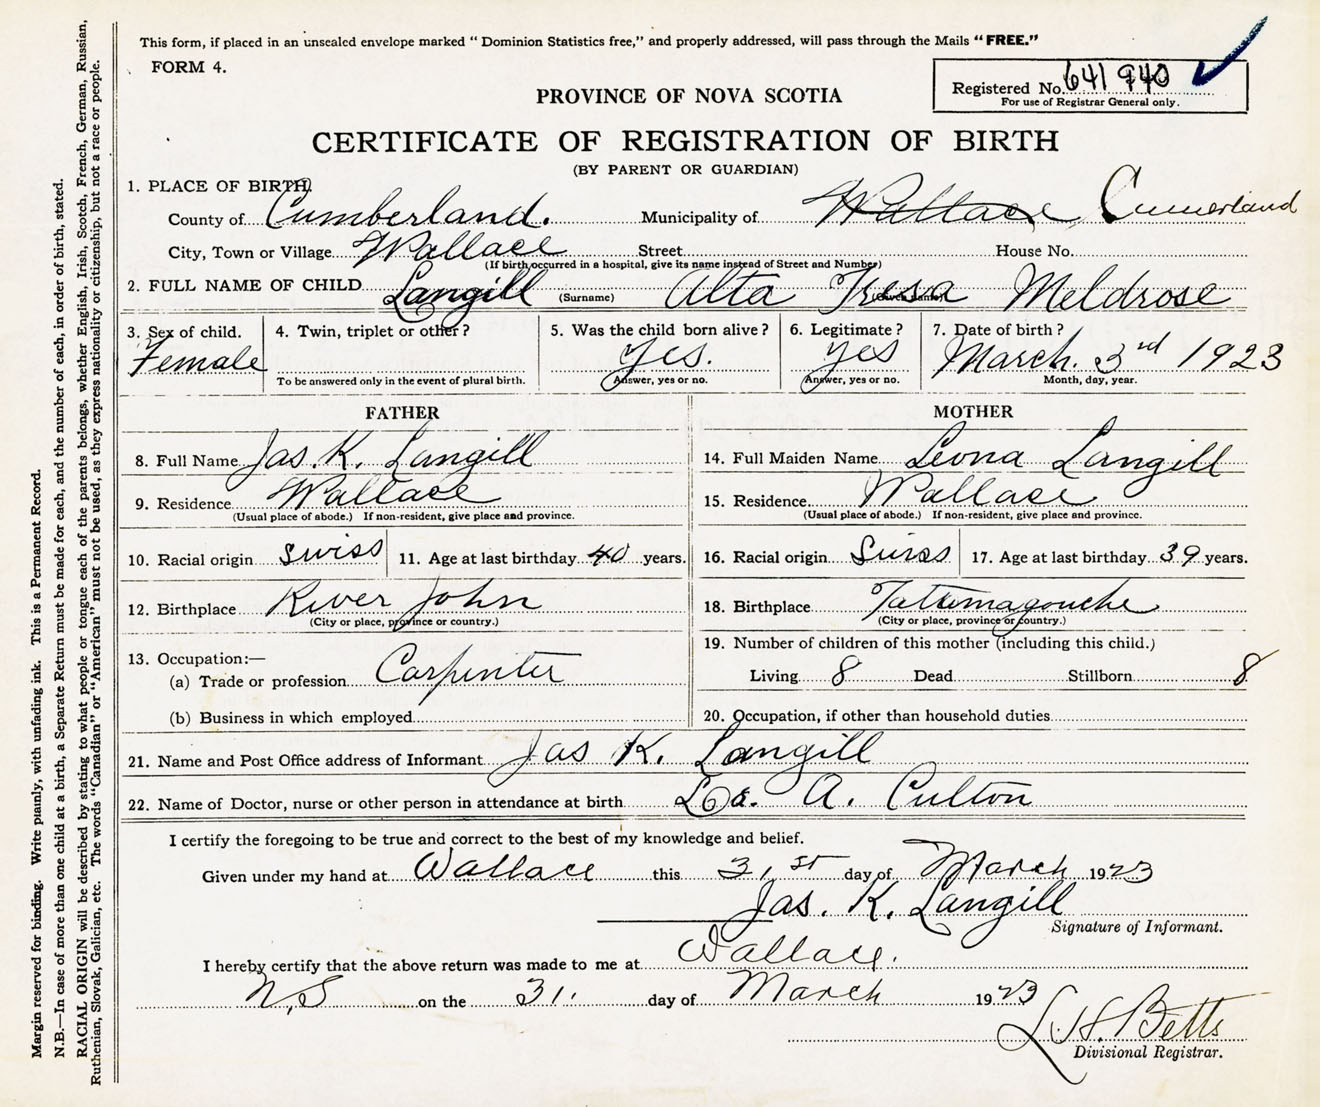 This form, if placed in an unsealed envelope marked " Dominion Statistics free," and properly addressed, will pass through the Mails " FREE."
FORM 4.
Registered No. 641 940
For use of Registrar General only.
PROVINCE OF NOVA SCOTIA
CERTIFICATE OF REGISTRATION OF BIRTH
(BY PARENT OR GUARDIAN)
1. PLACE OF BIRTH.
County of Cumberland. Municipality of Wallace Cumerland
City, Town or Village Wallace Street House No.
(If birth occurred in a hospital, give its name instead of Street and Number)
2. FULL NAME OF CHILD Langill (Surname) Alta Tresa Meldrose (Given name)
3. Sex of child. Female
4. Twin, triplet or other?
To be answered only in the event of plural birth.
5. Was the child born alive? Yes.
Answer, yes or no.
6. Legitimate? yes
Answer, yes or no.
7. Date of birth? March. 3rd 1923
Month, day, year.
FATHER
8. Full Name Jas. K. Langill
9. Residence Wallace
(Usual place of abode.) If non-resident, give place and province.
10. Racial origin swiss 11. Age at last birthday 40 years.
12. Birthplace River John
(City or place, province or country.)
13. Occupation:—
(a) Trade or profession Carpenter
(b) Business in which employed
MOTHER
14. Full Maiden Name Leona Langill
15. Residence Wallace
(Usual place of abode.) If non-resident, give place and province.
16. Racial origin Suiss 17. Age at last birthday 39 years.
18. Birthplace Tattamagouche
(City or place, province or country.)
19. Number of children of this mother (including this child.)
Living 8 Dead Stillborn 8
20. Occupation, if other than household duties
21. Name and Post Office address of Informant Jas K. Langill
22. Name of Doctor, nurse or other person in attendance at birth A. Culton
I certify the foregoing to be true and correct to the best of my knowledge and belief.
Given under my hand at Wallace this 31st day of March 1923
Jas. K. Langill
Signature of Informant.
I hereby certify that the above return was made to me at Wallace.
N,S on the 31. day of March 1923
L. H. Betts
Divisional Registrar.
Margin reserved for binding. Write plainly, with unfading ink. This is a Permanent Record.
N.B.—In case of more than one child at a birth, a Separate Return must be made for each, and the number of each, in order of birth, stated.
RACIAL ORIGIN will be described by stating to what people or tongue each of the parents belongs, whether English, Irish, Scotch, French, German, Russian,
Ruthenian, Slovak, Galician, etc. The words "Canadian" or "American" must not be used, as they express nationality or citizenship, but not a race or people.